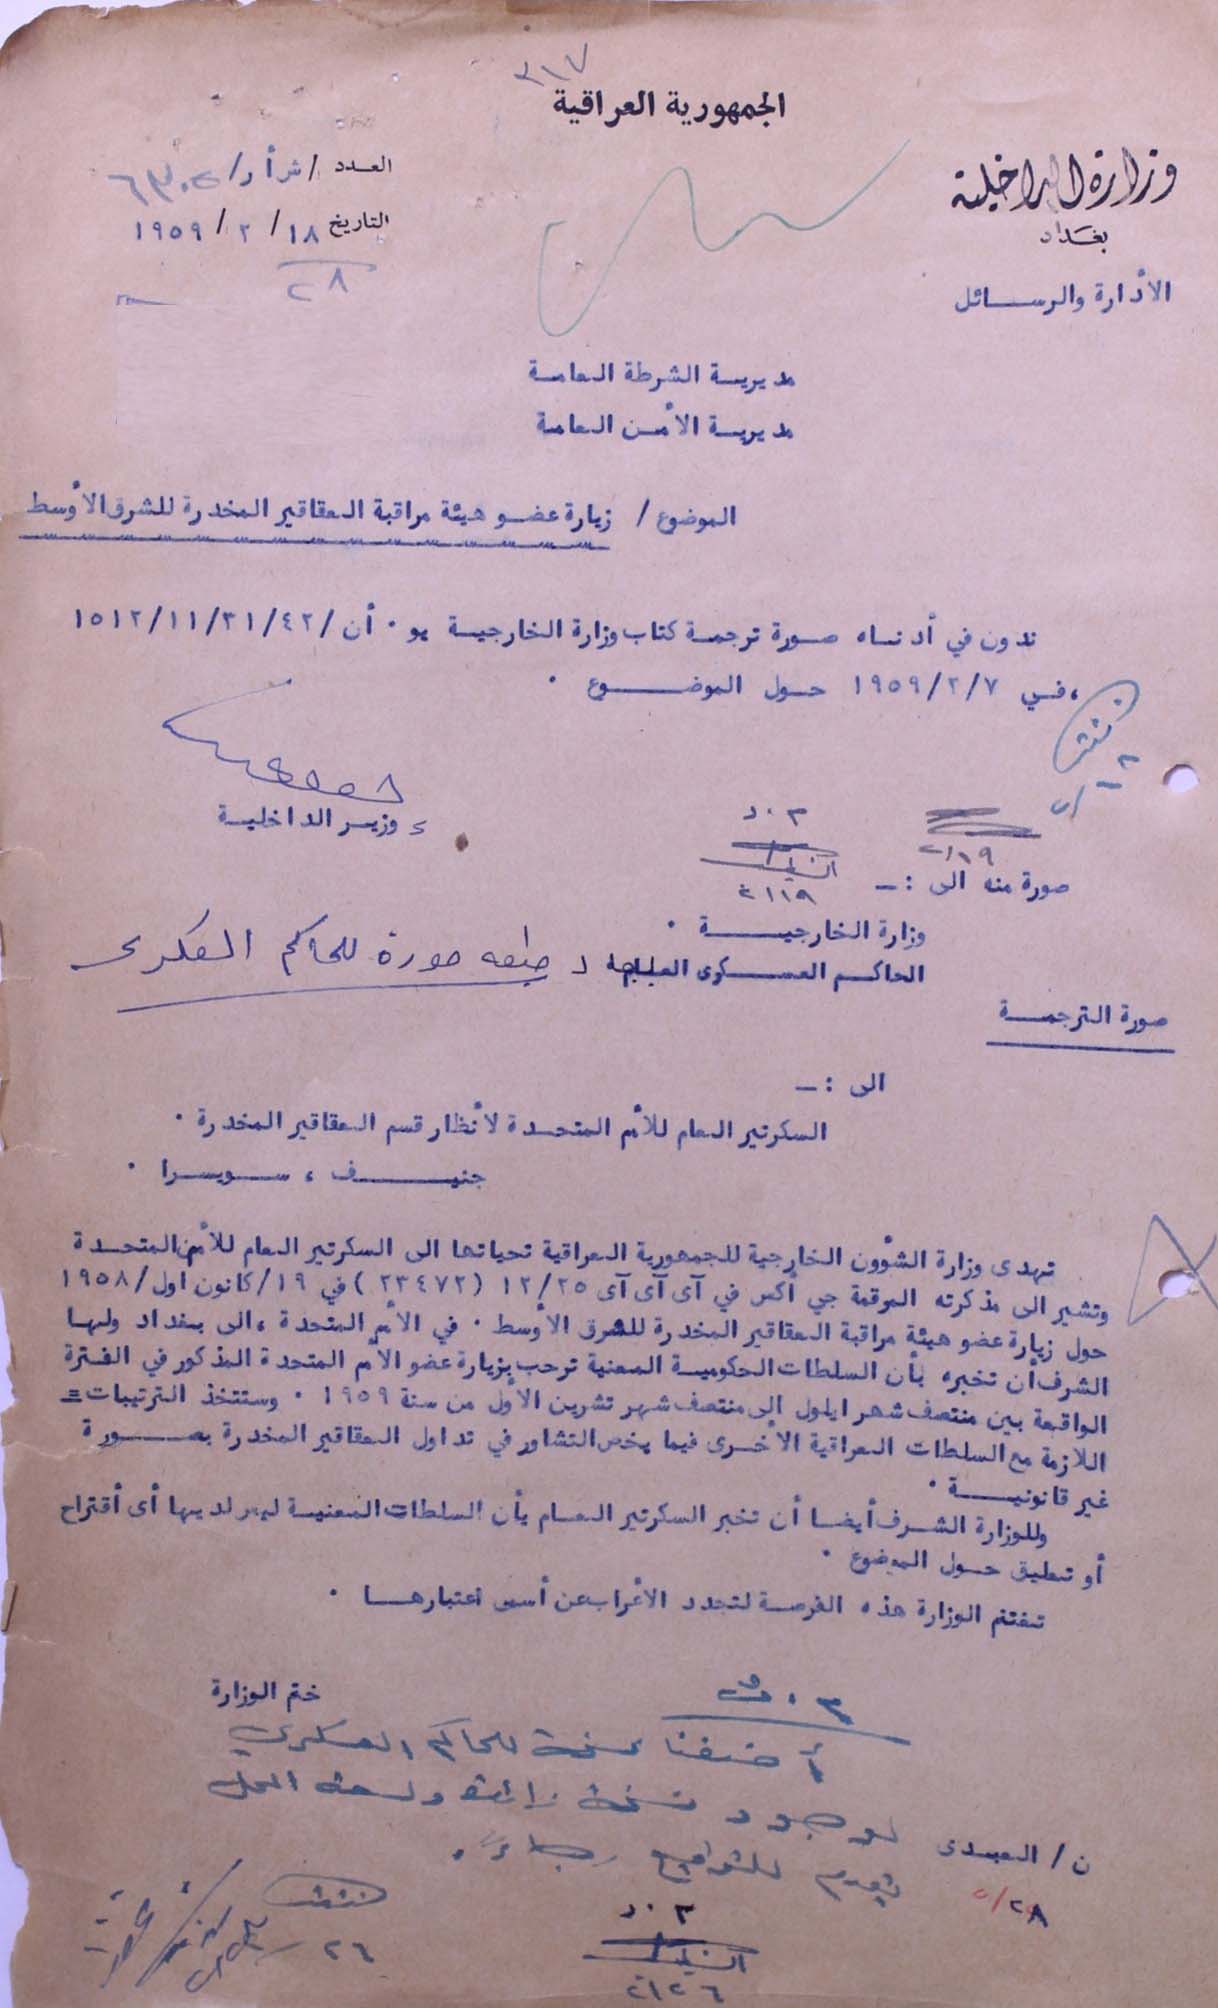 ٣١٧
الجمهورية العراقية
وزارة الداخلية
بغداد
الأدارة والرسائل
العدد / ش أ ر /
التاريخ ١٨ / ٢ / ١٩٥٩
٢٨
مديرية الشرطة العامة
مديرية الأمن العامة
الموضوع / زيارة عضو هيئة مراقبة العقاقير المخدرة للشرق الأوسط
ندون في أدناه صورة ترجمة كتاب وزارة الخارجية يو ٠ أن /١٥١٢/١١/٣١/٤٢
، في ١٩٥٩/٢/٧ حول الموضوع ٠
وزير الداخلية
٢/١٩
صورة منه الى :ـ
وزارة الخارجية ٠
الحاكم العسكرى العام
صورة للحاكم العسكرى
صورة الترجمة
الى :ـ
السكرتير العام للأمم المتحدة لأنظار قسم العقاقير المخدرة ٠
جنيف ، سويسرا ٠
تهدى وزارة الشؤون الخارجية للجمهورية العراقية تحياتها الى السكرتير العام للأمم المتحدة
وتشير الى مذكرته المرقمة جي أكس في آى آى آى ١٢/٢٥ (٢٣٤٧٢) في ١٩/كانون اول/١٩٥٨
حول زيارة عضو هيئة مراقبة العقاقير المخدرة للشرق الأوسط ٠ في الأمم المتحدة ، الى بغداد ولها
الشرف أن تخبره بأن السلطات الحكومية المعنية ترحب بزيارة عضو الأمم المتحدة المذكور في الفترة
الواقعة بين منتصف شهر ايلول الى منتصف شهر تشرين الأول من سنة ١٩٥٩ ٠ وستتخذ الترتيبات =
اللازمة مع السلطات العراقية الأخرى فيما يخص التشاور في تداول العقاقير المخدرة بصورة
غير قانونية ٠
وللوزارة الشرف أيضا أن تخبر السكرتير العام بأن السلطات المعنية ليس لديها أى أقتراح
أو تعليق حول الموضوع ٠
تغتنم الوزارة هذه الفرصة لتجدد الأعراب عن أسمى اعتبارها ٠
ختم الوزارة
أضفنا نسخة للحاكم العسكري
لوجود نسخة زائدة
يقدم للتوقيع رجاء .
ن / العبيدى
٢/٢٨
٢٦